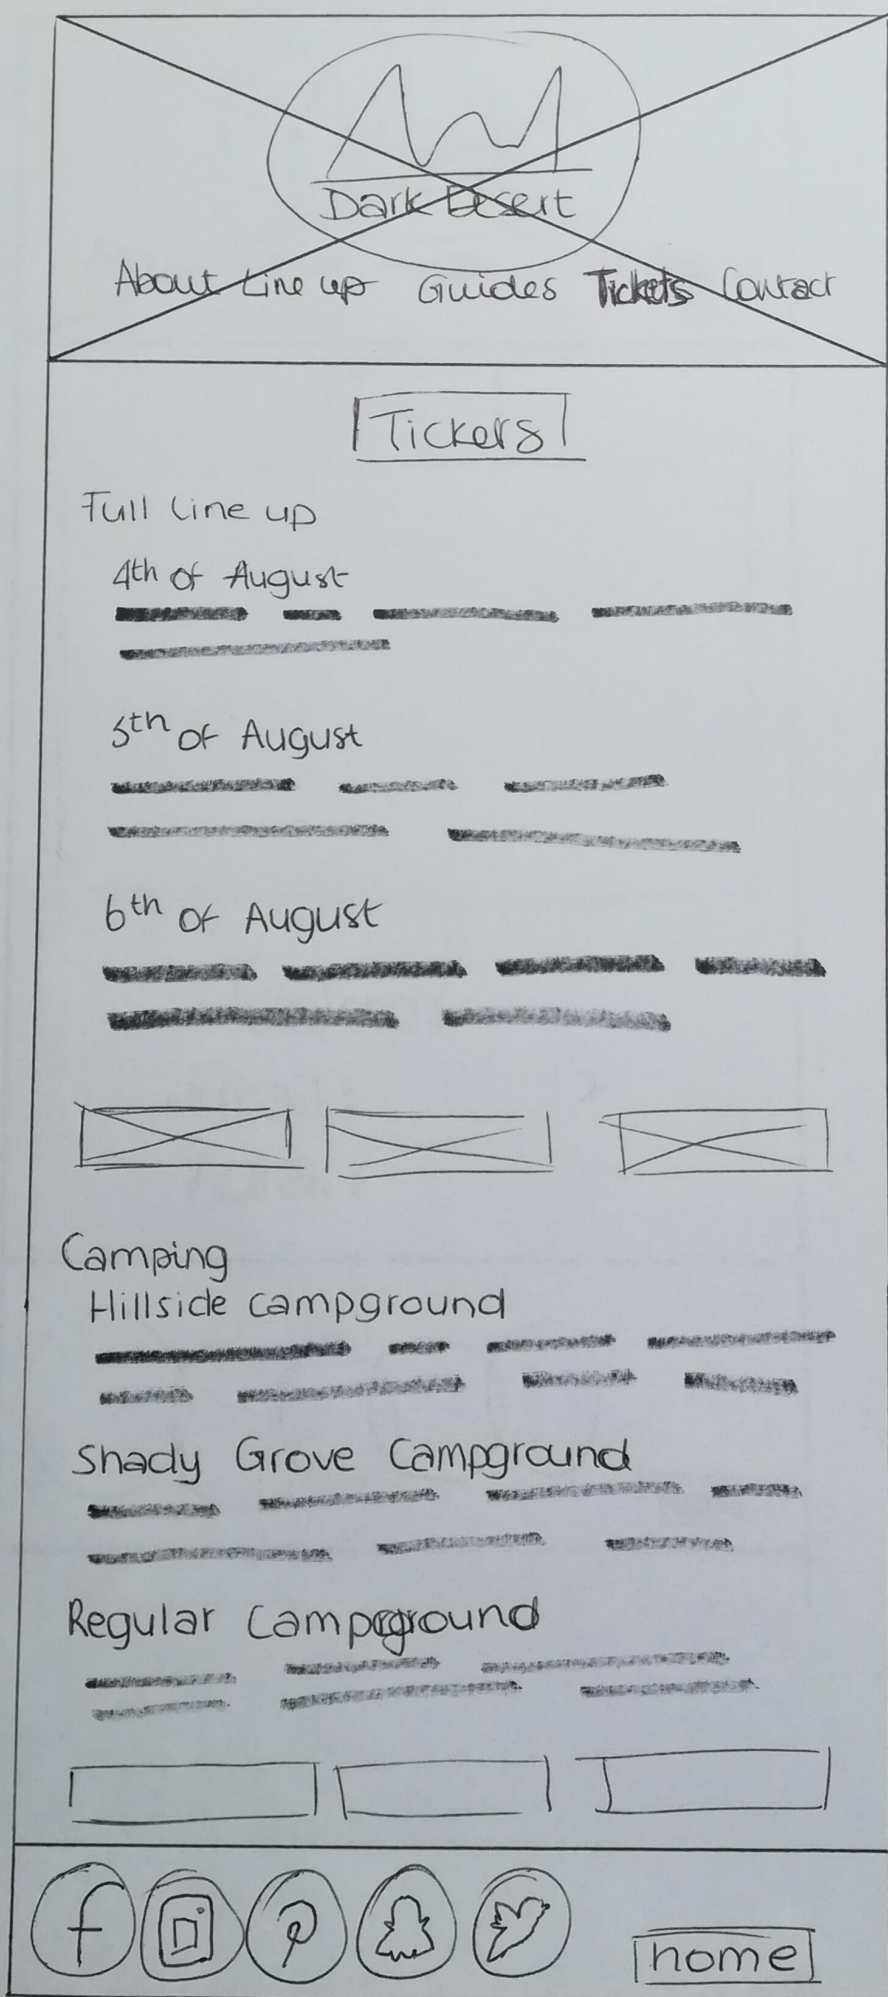 Dark Desert
About Line up Guides Tickets Contact
Tickets
Full Line up
4th of August
5th of August
6th of August
Camping
Hillside campground
Shady Grove Campground
Regular Campground
home